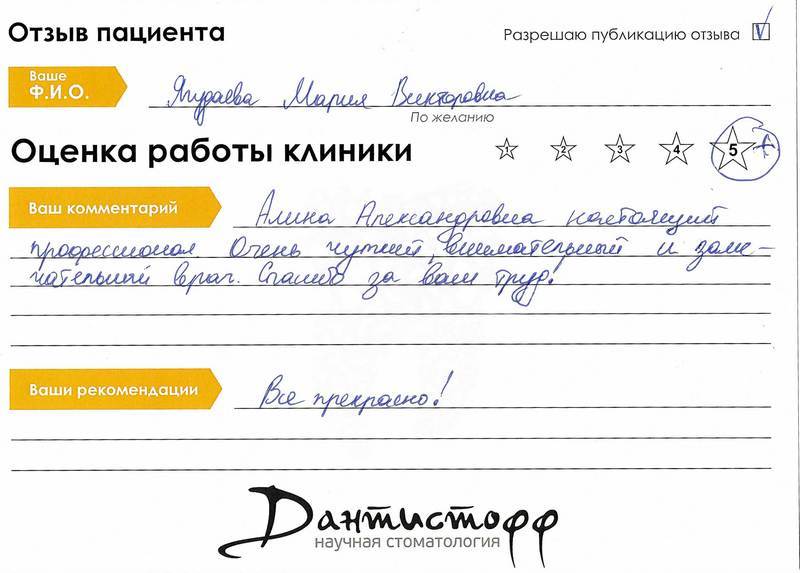 Отзыв пациента
Разрешаю публикацию отзыва
Ваше
Ф.И.О.
Ягудаева Мария Викторовна
По желанию
Оценка работы клиники
1 2 3 4 5 +
Ваш комментарий
Алина Александровна настоящий
профессионал. Очень чуткий, внимательный и заме-
чательный врач. Спасибо за ваш труд!
Ваши рекомендации
Все прекрасно!
Дантистофф
научная стоматология